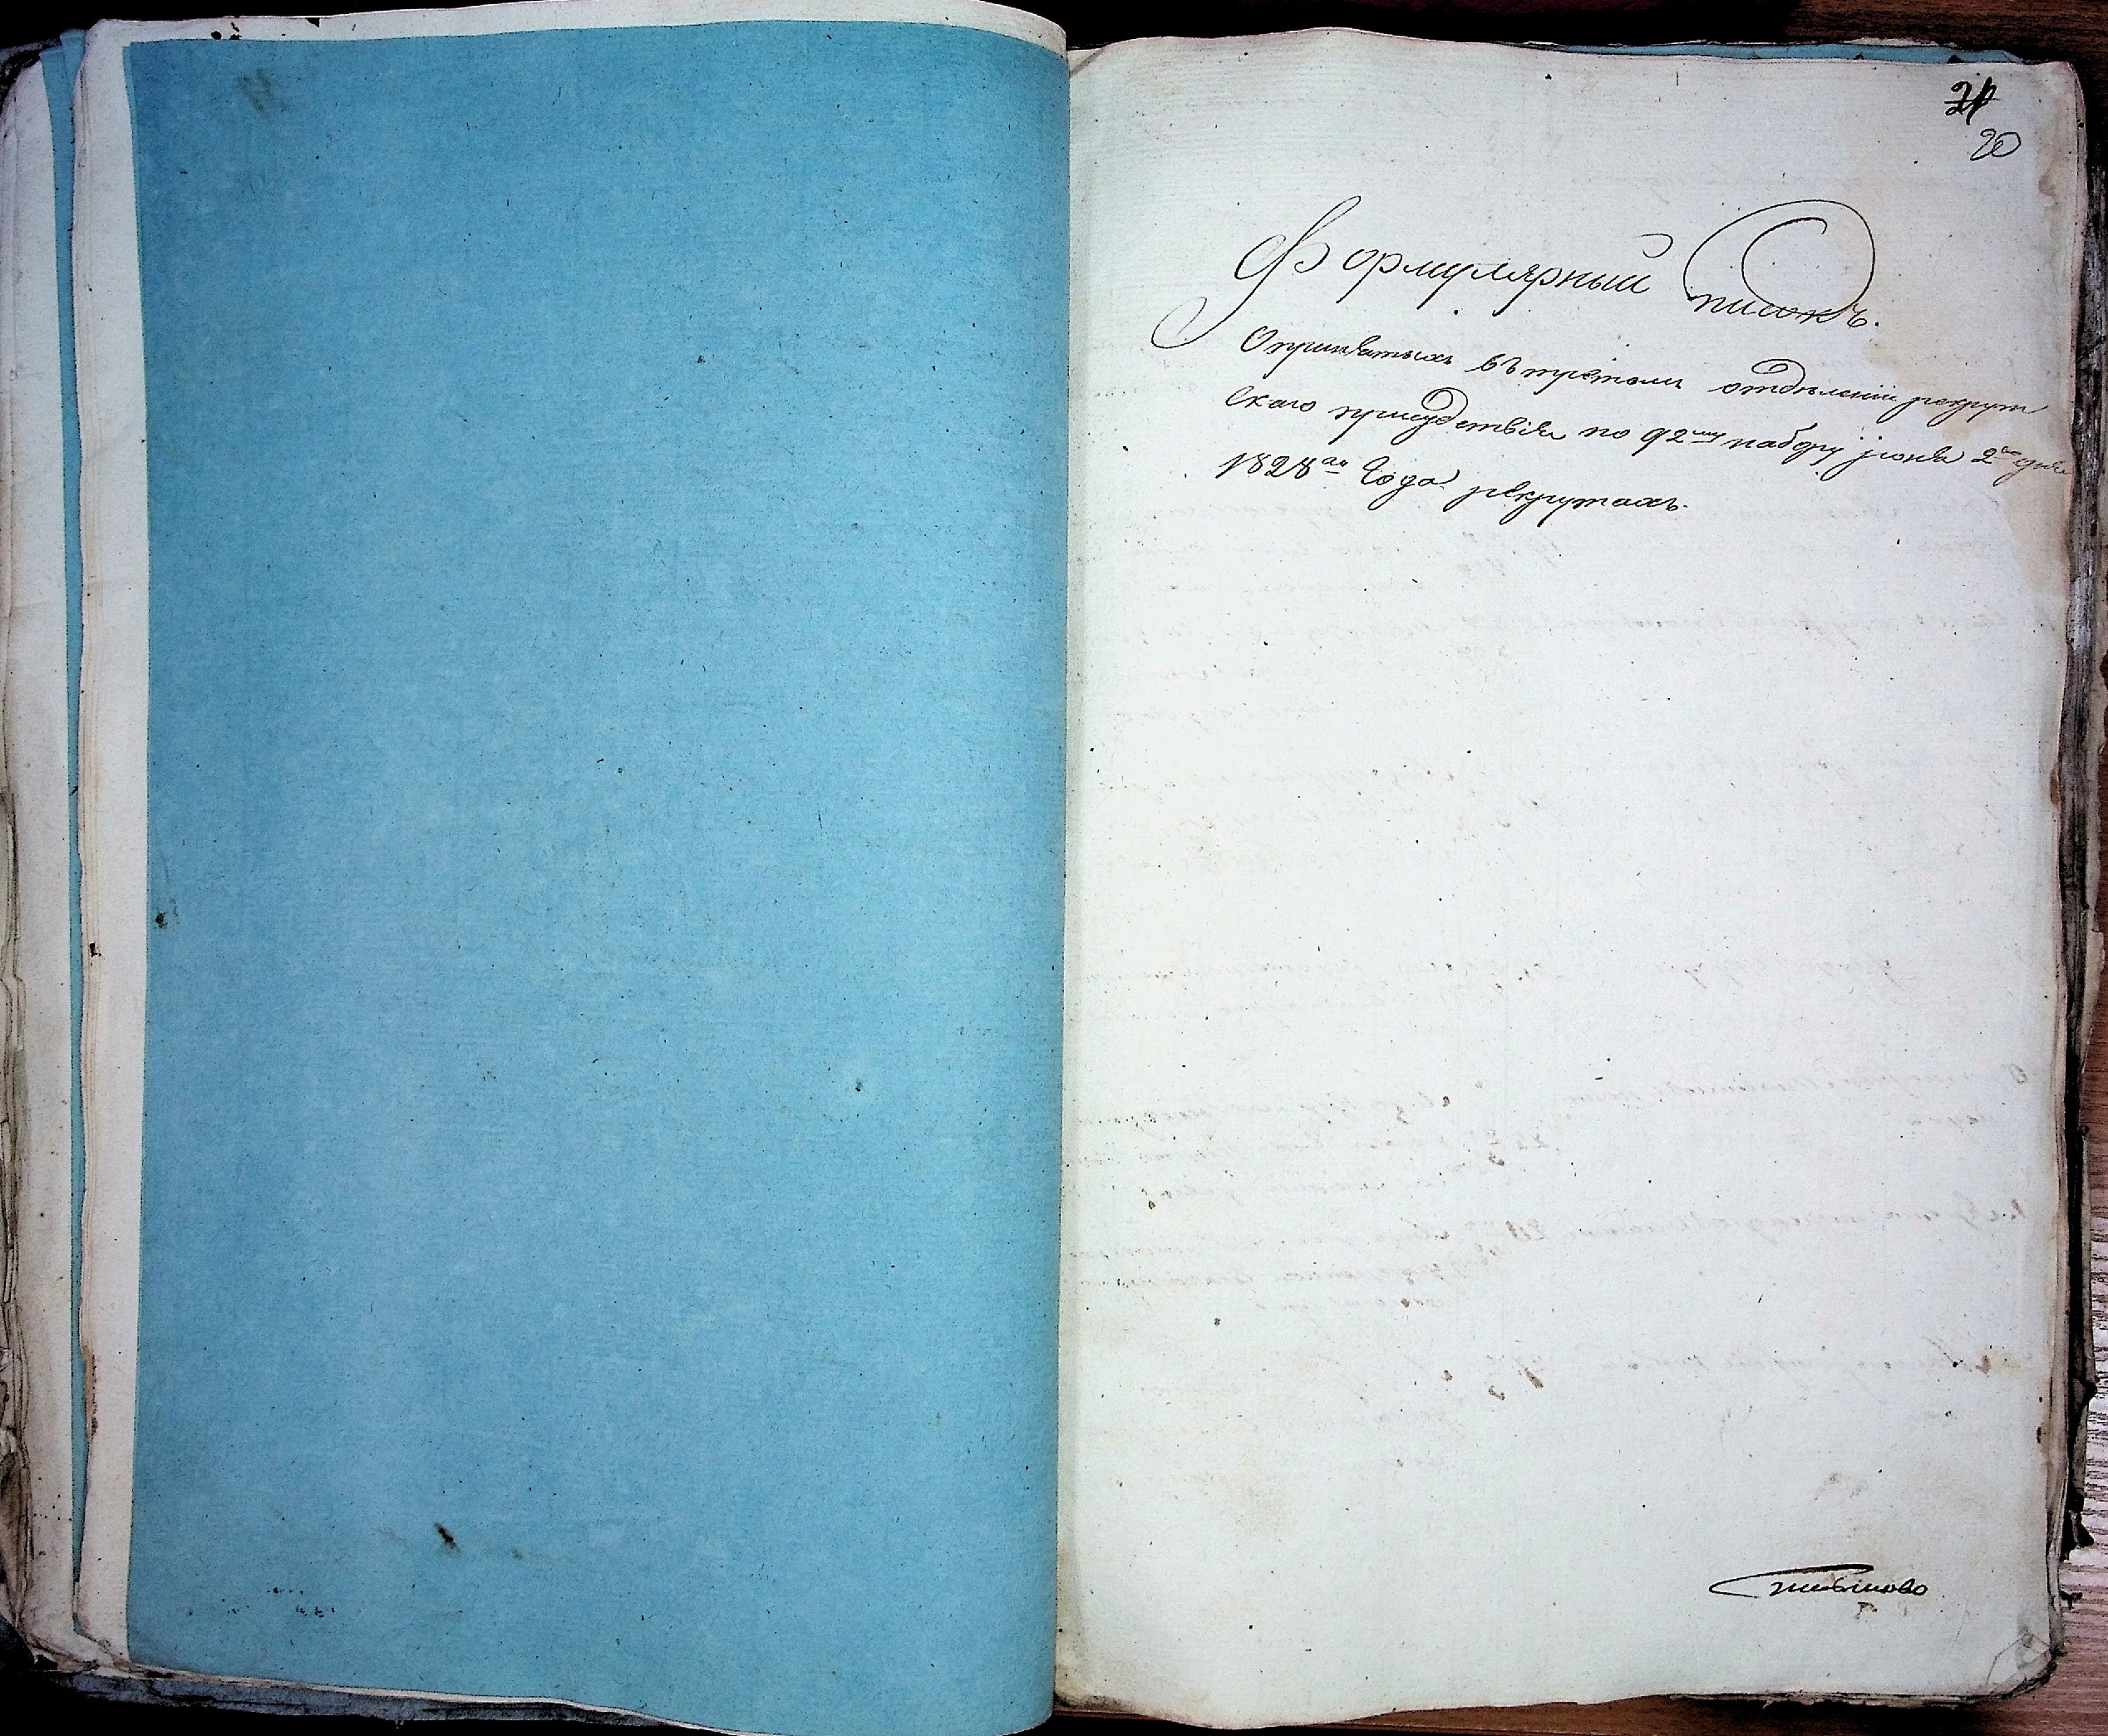 21
20
Формулярный Списокъ.
Опринятыхъ въ третьемъ отдѣленіи рекрут
скаго присудствія по 92му набору іюня 2го дня
1828го Года рекрутахъ.